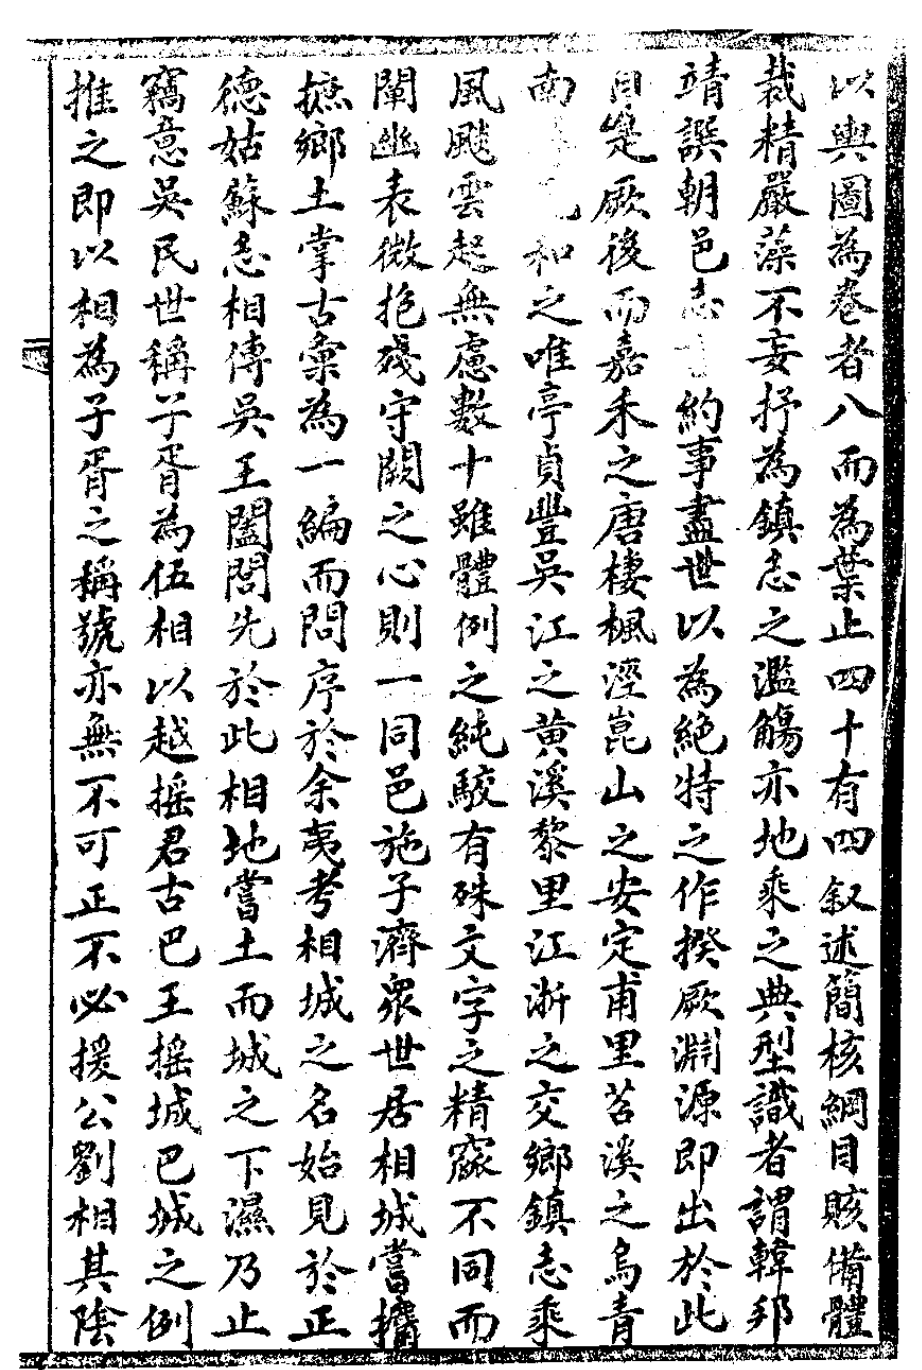 以輿圖為卷者八而為葉止四十有四叙述簡核綱目賅備體
裁精嚴藻不妄抒為鎮志之濫觴亦地乘之典型識者謂韓邦
靖譔朝邑志約事盡世以為絶特之作揆厥淵源即出於此
自是厥後而嘉禾之唐棲楓涇崑山之安定甫里苕溪之烏青
南和之唯亭貞豐吳江之黄溪黎里江浙之交鄉鎮志乘
風颷雲起無慮數十雖體例之純駮有殊文字之精窳不同而
闡幽表微抱殘守闕之心則一同邑施子濟衆世居相城嘗擴
摭鄉土掌古彙為一編而問序於余夷考相城之名始見於正
德姑蘇志相傳吳王闔閭先於此相地嘗土而城之下濕乃止
竊意吳民世稱子胥為伍相以越摇君古巴王摇城巴城之例
推之即以相為子胥之稱號亦無不可正不必援公劉相其陰